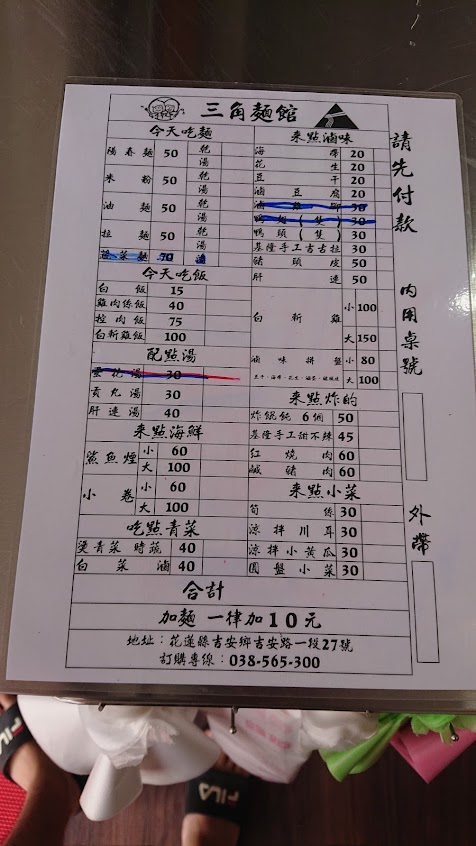 三角麵館
今天吃麵
陽春麵 50 乾 湯
米粉 50 乾 湯
油麵 50 乾 湯
拉麵 50 乾 湯
70 湯
今天吃飯
白飯 15
雞肉絲飯 40
控肉飯 75
白斬雞飯 100
配點湯
蛋花湯 30
貢丸湯 30
肝連湯 40
來點海鮮
鯊魚煙 小 60
大 100
小卷 小 60
大 100
吃點青菜
燙青菜 時蔬 40
白菜滷 40
來點滷味
海帶 20
花生 20
豆干 20
滷豆腐 20
滷雞腳 30
鴨翅(隻) 30
鴨頭(隻) 30
基隆手工吉古拉 30
豬頭皮 50
肝連 50
白斬雞 小 100
大 150
滷味拼盤 小 80
大 100
來點炸的
炸餛飩 6個 50
基隆手工甜不辣 45
紅燒肉 60
鹹豬肉 60
來點小菜
筍絲 30
涼拌川耳 30
涼拌小黃瓜 30
圓盤小菜 30
合計
加麵 一律加10元
地址：花蓮縣吉安鄉吉安路一段27號
訂購專線：038-565-300
請先付款
內用桌號
外帶
FILA
FILA